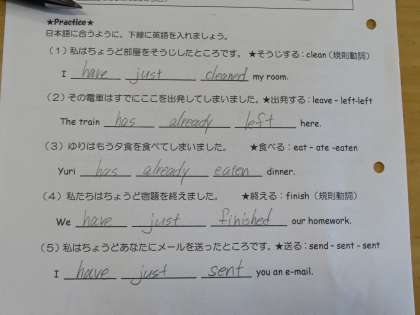 ★Practice★
日本語に合うように、下線に英語を入れましょう。
(1)私はちょうど部屋をそうじしたところです。 ★そうじする:clean(規則動詞)
I have just cleaned my room.
(2)その電車はすでにここを出発してしまいました。★出発する:leave - left-left
The train has already left here.
(3)ゆりはもう夕食を食べてしまいました。 ★食べる:eat - ate -eaten
Yuri has already eaten dinner.
(4)私たちはちょうど宿題を終えました。 ★終える:finish(規則動詞)
We have just finished our homework.
(5)私はちょうどあなたにメールを送ったところです。★送る:send - sent - sent
I have just sent you an e-mail.